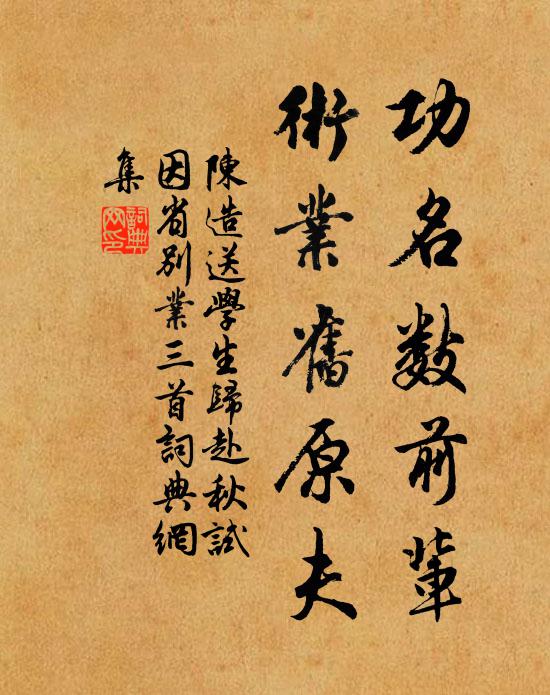 功名數前輩
術業舊原夫
陳造送學生歸赴秋試
因省別業三首詞典網
集
詞典
网印